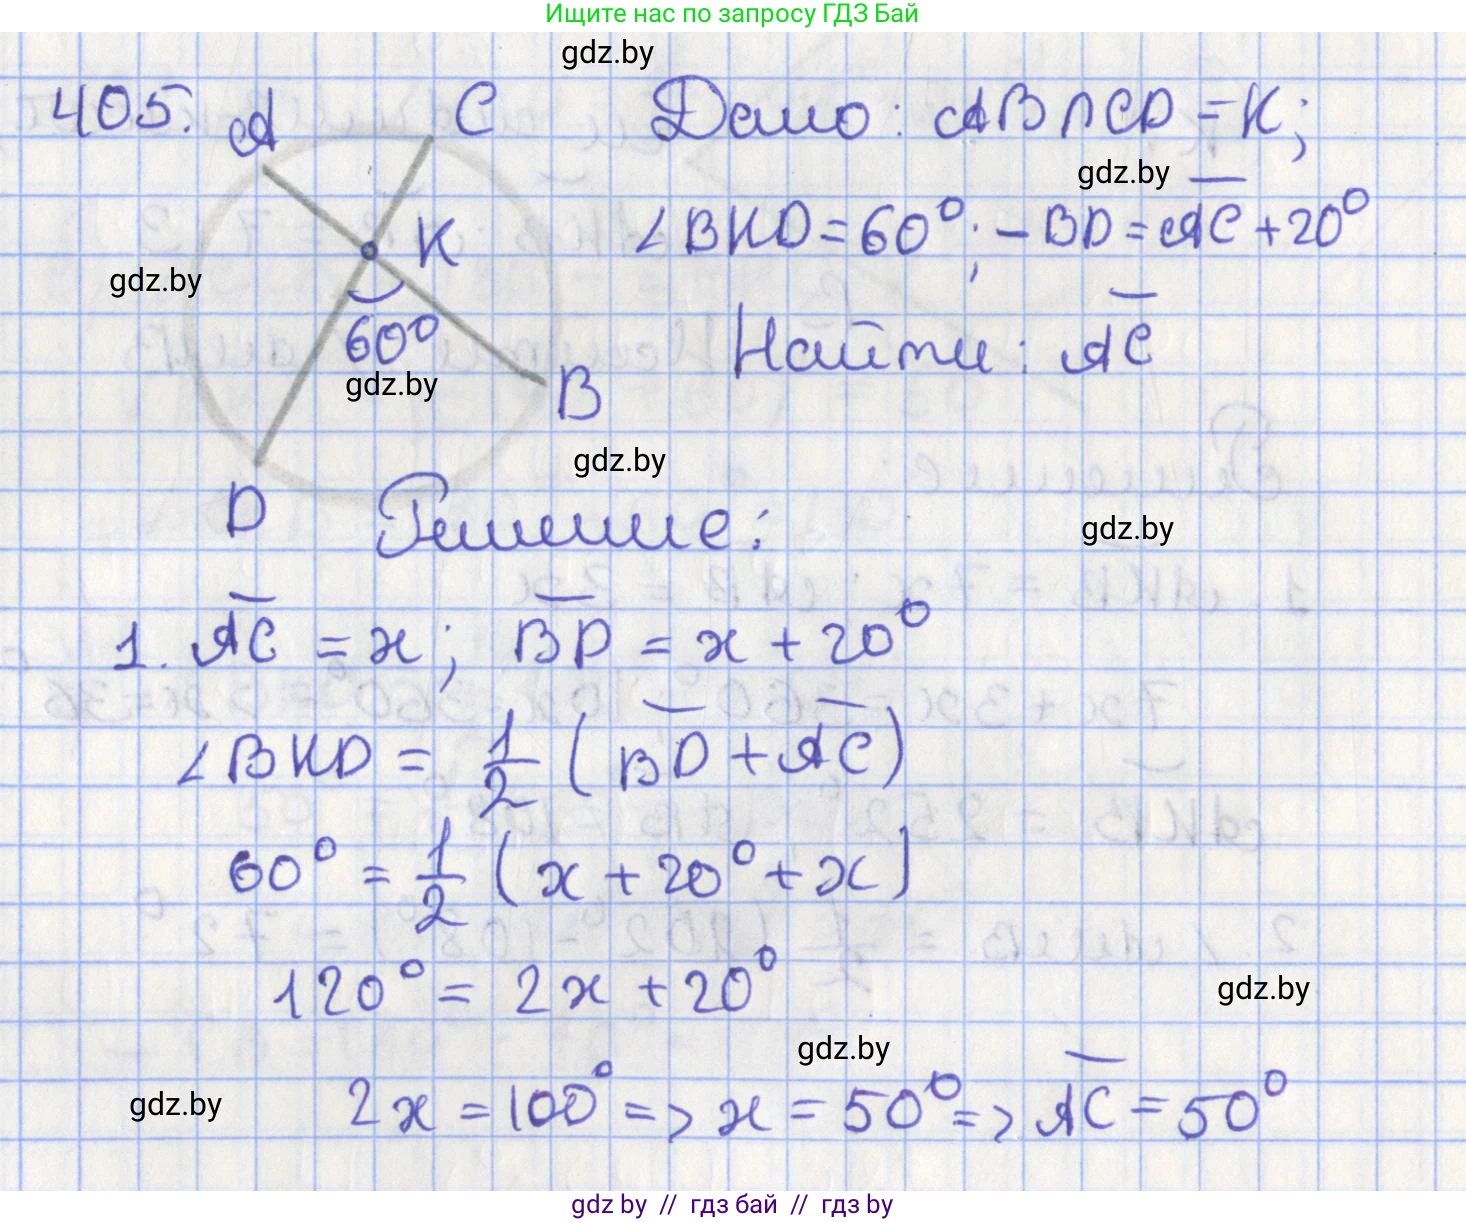 Ищите нас по запросу ГДЗ Бай
gdz.by
405. A C Дано: AB ∩ CD = K;
gdz.by
K ∠BKD = 60°; ⌣BD = AC + 20°
gdz.by
60° Найти: AC
gdz.by
B
gdz.by
D Решение:
gdz.by
1. AC = x; BD = x + 20°
∠BKD = 1/2 (BD + AC)
60° = 1/2 (x + 20° + x)
120° = 2x + 20°
gdz.by
gdz.by
gdz.by
2x = 100° => x = 50° => AC = 50°
gdz.by // гдз бай // гдз by